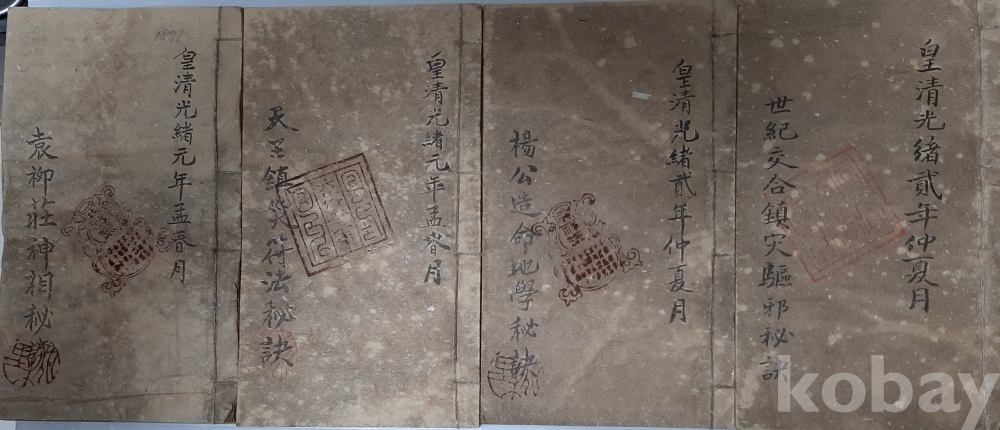 皇清光緒元年孟春月
袁柳莊神相秘
皇清光緒元年孟春月
天王鎮煞符法秘訣
皇清光緒貳年仲夏月
楊公造命地學秘訣
皇清光緒貳年仲夏月
世紀交合鎮災驅邪秘訣
kobay